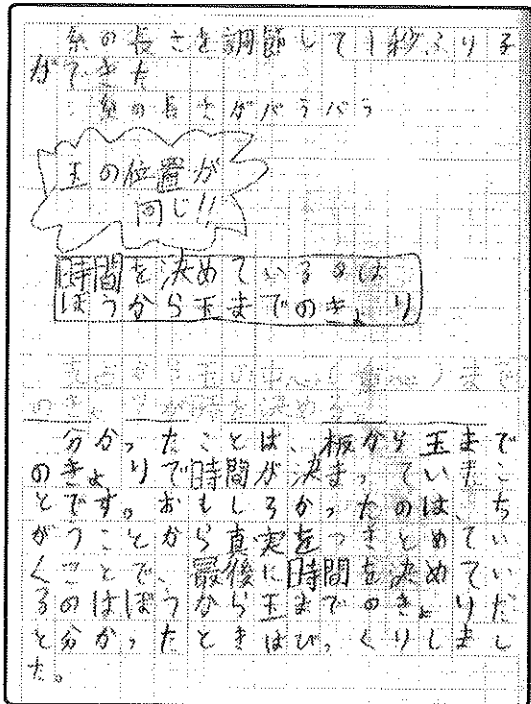 糸の長さを調節して1秒ふり子
ができた
糸の長さがバラバラ
玉の位置が
同じ!!
時間を決めているのは
ぼうから玉までのきょり
支点から玉の中心(重心)まで
のきょりが時を決める。
分かったことは、板から玉まで
のきょりで時間が決まっていたこ
とです。おもしろかったのは、ち
がうことから真実をつきとめてい
くことで、最後に時間を決めてい
るのはぼうから玉までのきょりだ
と分かったときはびっくりしまし
た。